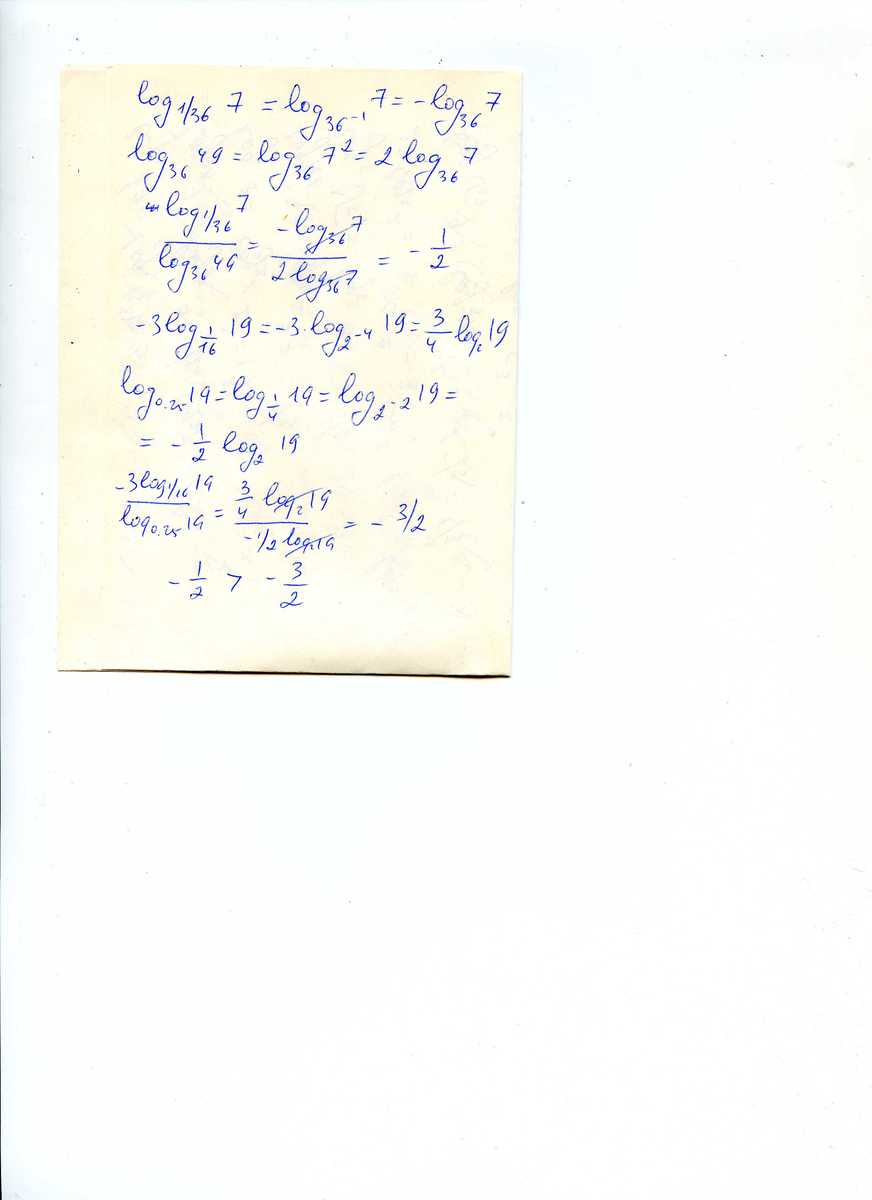 log_{1/36} 7 = log_{36^{-1}} 7 = -log_{36} 7
log_{36} 49 = log_{36} 7^2 = 2 log_{36} 7
\frac{log_{1/36} 7}{log_{36} 49} = \frac{-log_{36} 7}{2 log_{36} 7} = -\frac{1}{2}
-3 log_{\frac{1}{16}} 19 = -3 · log_{2^{-4}} 19 = \frac{3}{4} log_2 19
log_{0.25} 19 = log_{\frac{1}{4}} 19 = log_{2^{-2}} 19 =
= -\frac{1}{2} log_2 19
\frac{-3 log_{1/16} 19}{log_{0.25} 19} = \frac{\frac{3}{4} log_2 19}{-1/2 log_2 19} = -3/2
-\frac{1}{2} > -\frac{3}{2}